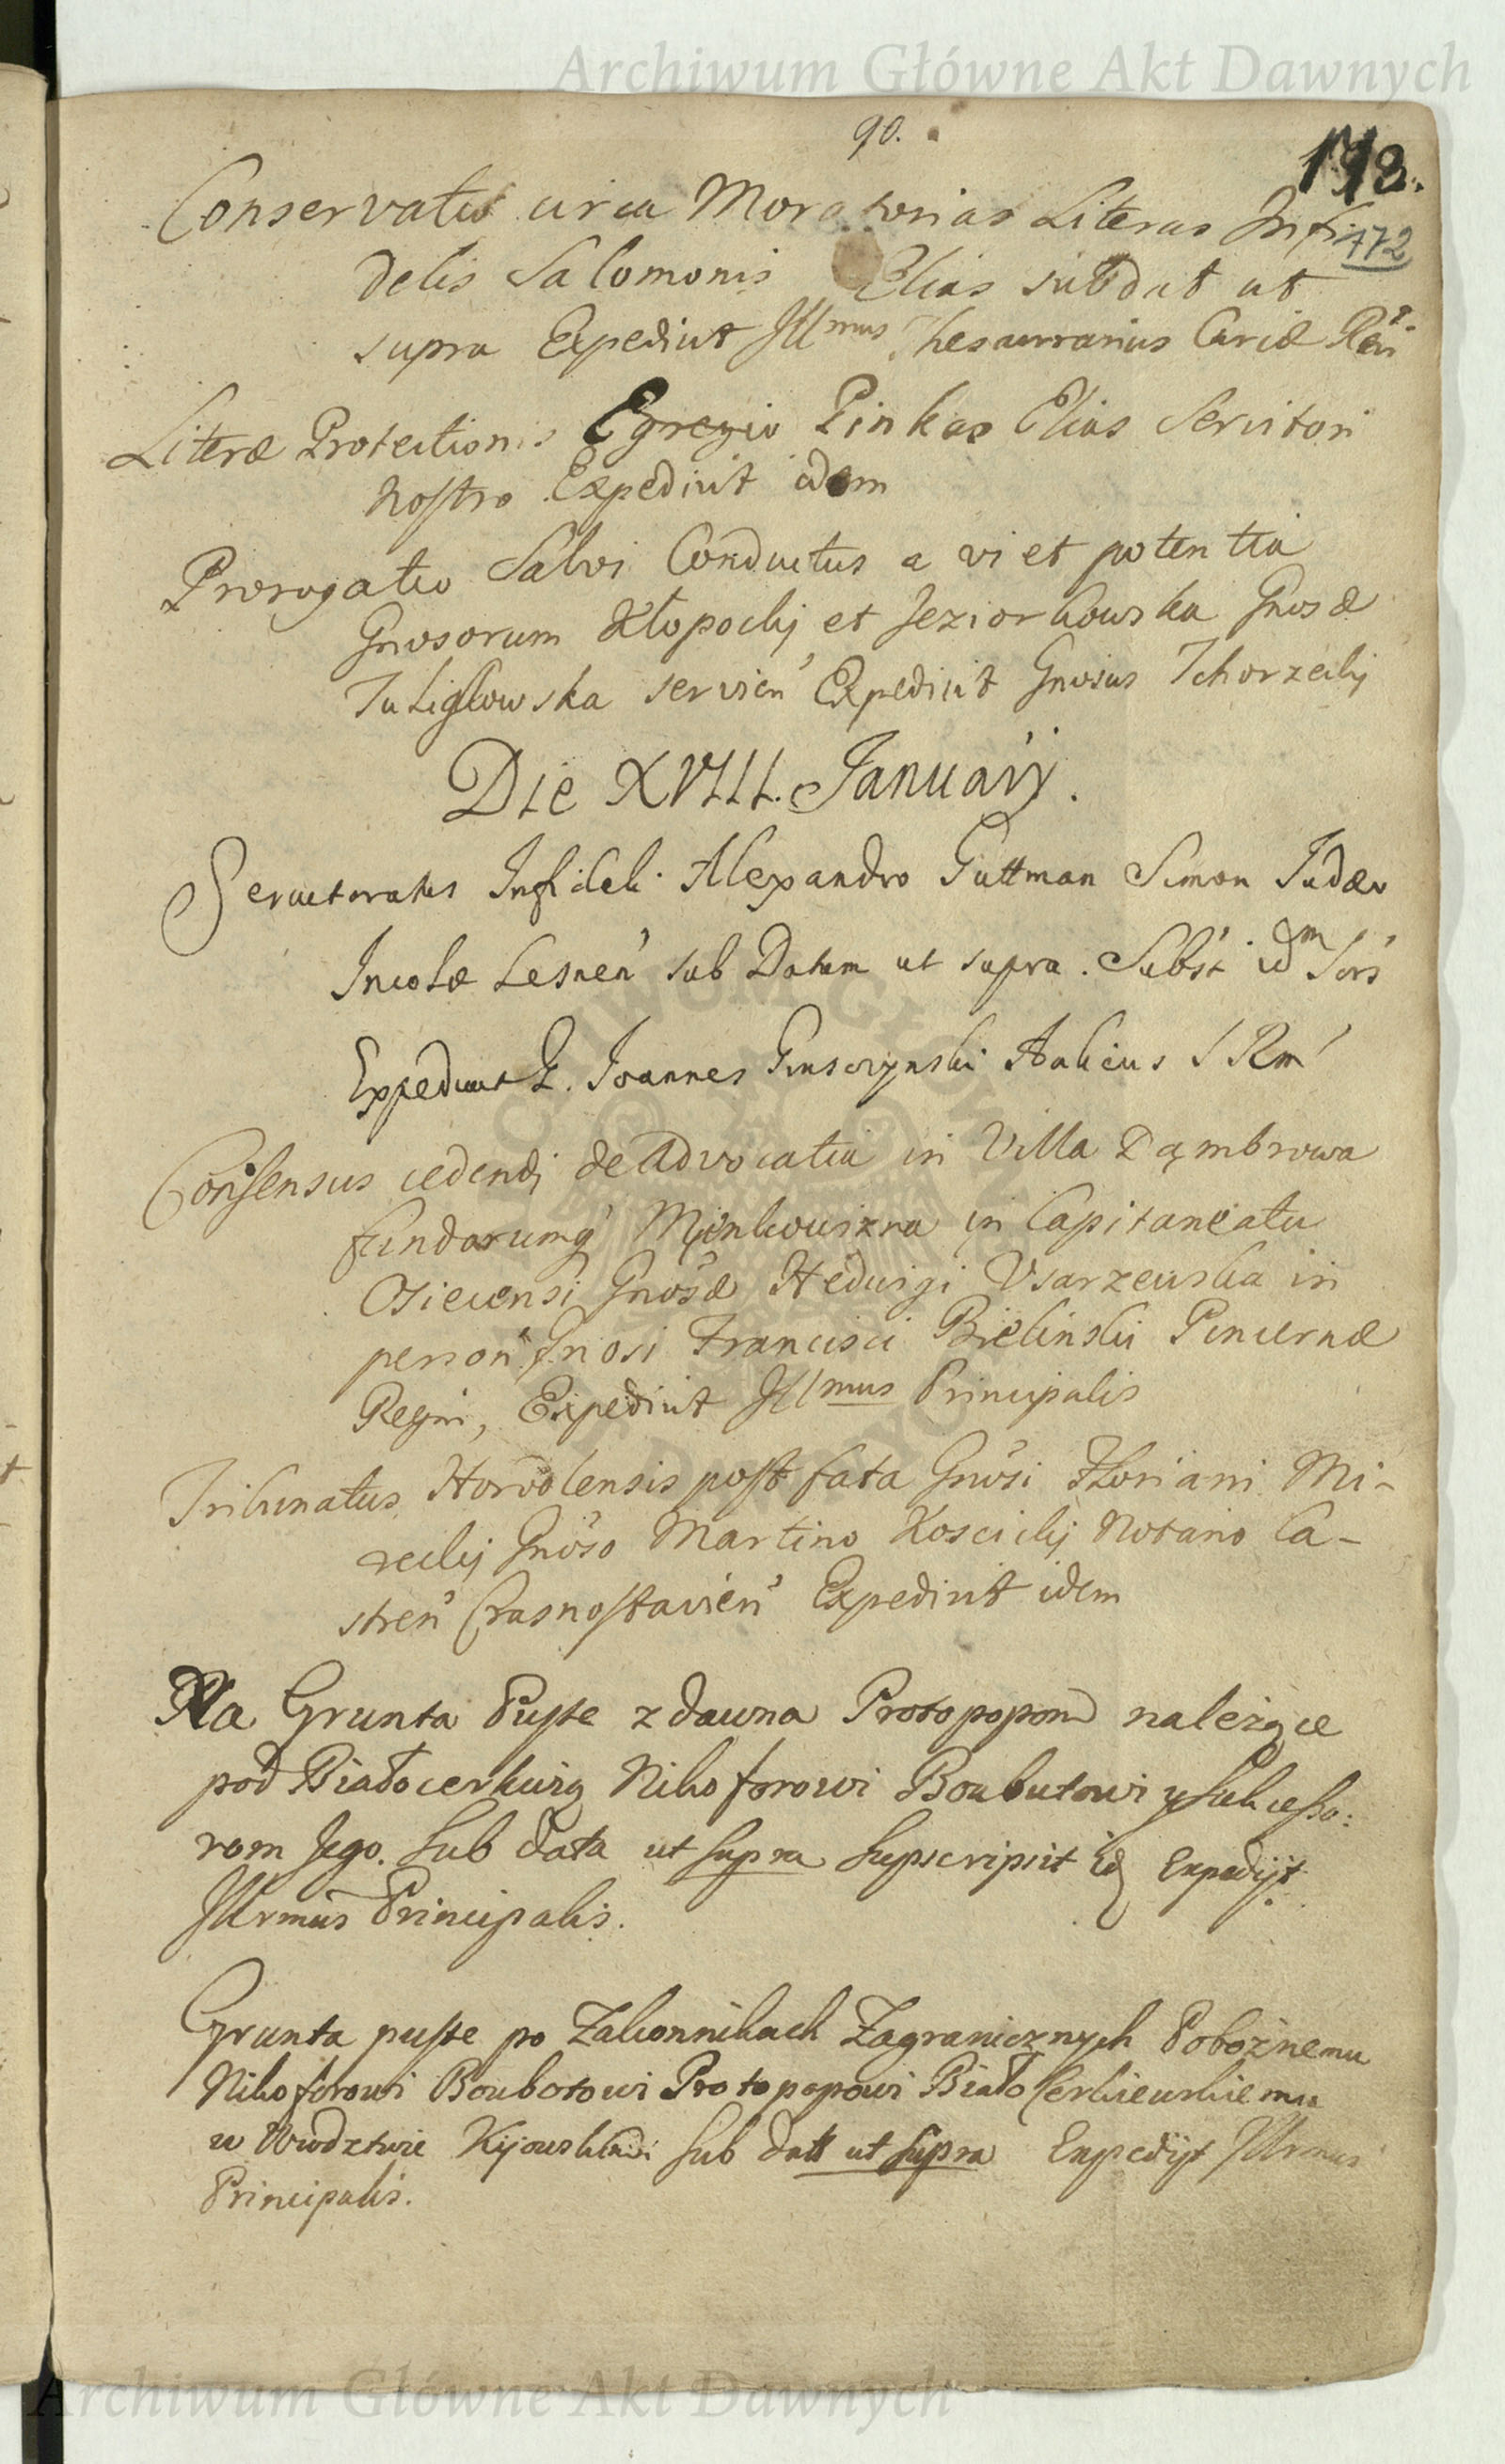 Archiwum Główne Akt Dawnych
90.
172
Conservatio circa Moratorias Literas Infi-
delis Salomonis Elias sub dat ut
supra Expedivit Illmus Thesaurarius Curiæ Rñi
Literæ Protectionis Egregio Pinkas Elias Servitori
nostro Expedivit idem
Prorogatio Salvi Conductus a vi et potentia
Gnosorum Kłopocky et Jeziorkowska Gnosæ
Tuligłowska servien Expedivit Gnosus Tchorzecky
Die XVIII. Januarij.
Servitoratus Infideli Alexandro Guttman Simon Judæo
Incolæ Lesnen sub Datum ut supra. Subst idm
Expedivit G. Joannes Aulicus S R M
Consensus cedendi de Advocatia in Villa Dąmbrowa
fundorumq Mięnkowizna in Capitaneatu
Osiecensi Gnosæ Hedvigi Vsarzewska in
person Gnosi Francisci Bielinski Pincernæ
Regni, Expedivit Illmus Principalis
Tribunatus Horodlensis post fata Gnosi Floriani Mi-
recky Gnoso Martino Koscicky Notario Ca-
stren Crasnostavien Expedivit idem
Na Grunta Puste z dawna Protopopom należące
pod Białocerkwią Nikoforowi Boubutowi y Sukcesso:
rom Jego. Sub data ut supra supscripsit id Expedijt
Illrmus Principalis.
Grunta puste po Zakonnikach Zagranicznych Pobożnemu
Nikoforowi Boubotowi Protopopowi Białocerkiewskiemu
w Wwodztwie Kijowskim Sub datt ut supra Expedijt Illrmus
Principalis.
Archiwum Główne Akt Dawnych